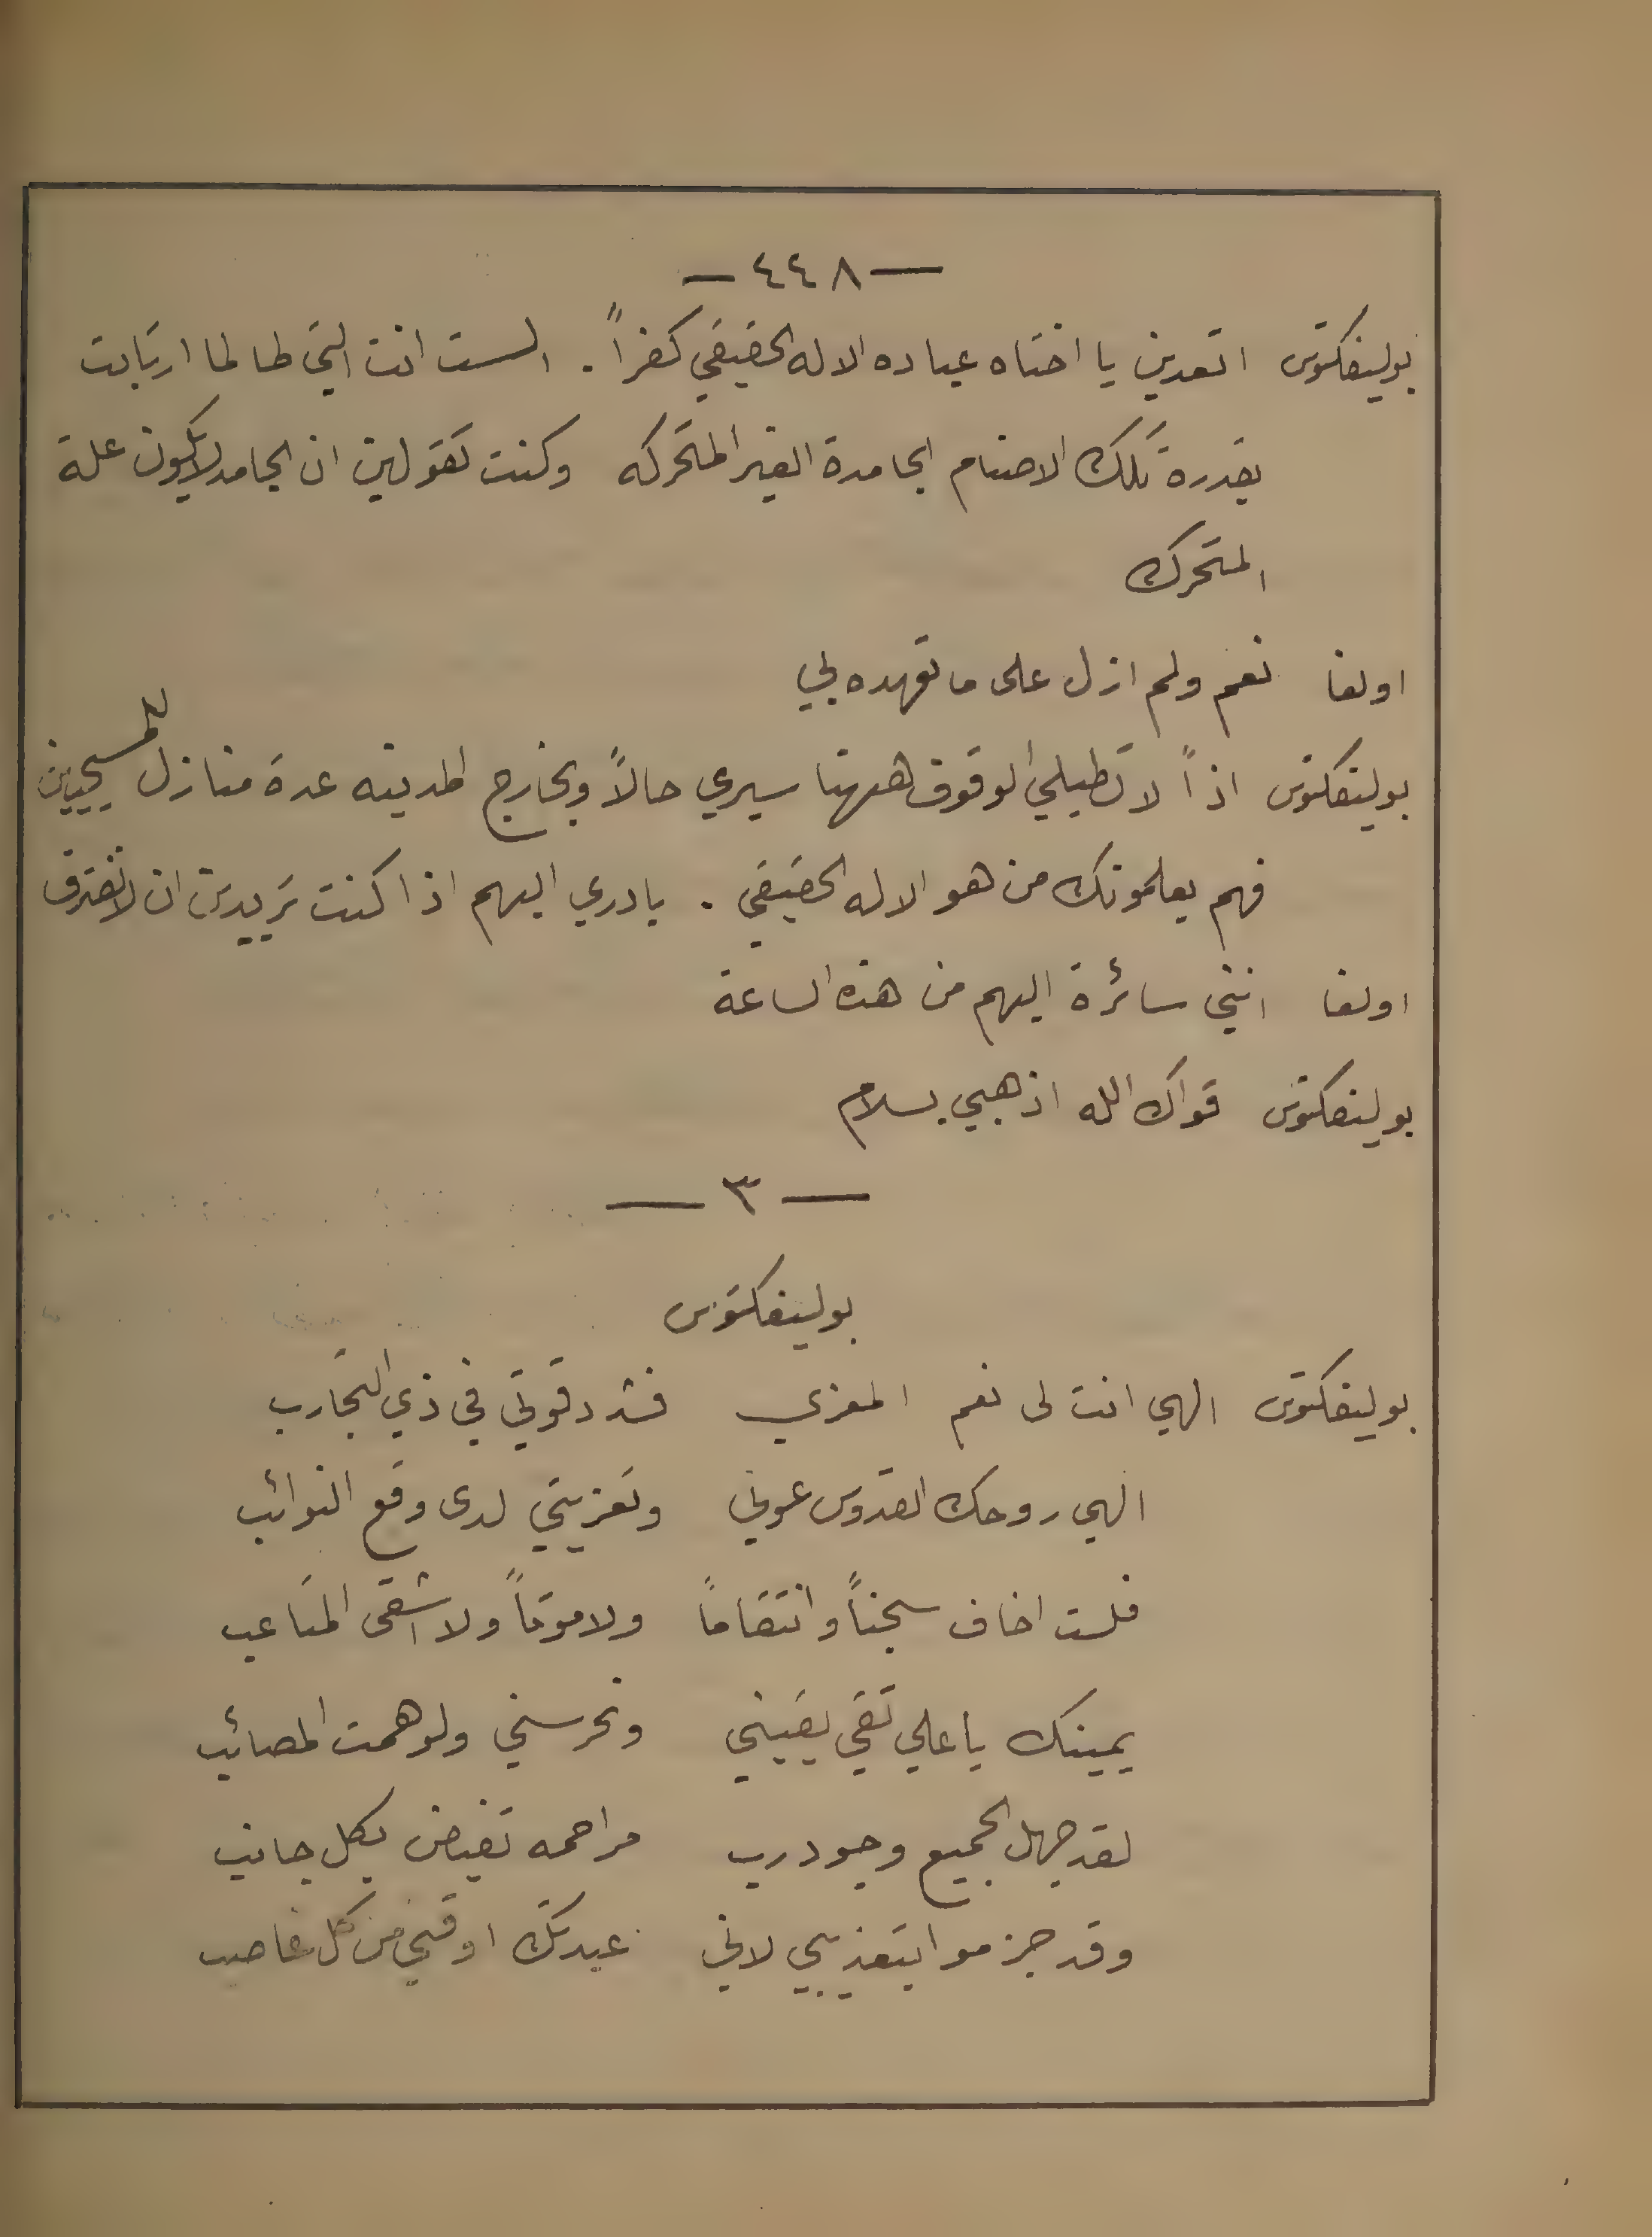 — ٤٤٨ —
بوليفكتوس اتعدين يا اختاه عباده الاله الحقيقي كفراً . الست انت التي طالما ارتابت
بقدرة تلك الاصنام الجامدة الغير المتحركه وكنت تقولين ان الجامد لا يكون علة
المتحرك
اولفا نعم ولم ازل على ما تعهده بي
بوليفكتوس اذاً لا تطيلي الوقوف ههنا سيري حالاً وبخارج المدينه عدة منازل للمسيحيين
فهم يعلمونك من هو الاله الحقيقي . بادري اليهم اذا كنت تريدين ان لا نفترق
اولفا انني سائرة اليهم من هذه الساعة
بوليفكتوس قواك الله اذهبي بسلام
— ٣ —
بوليفكتوس
بوليفكتوس الهي انت لى نعم المعزي فشدد قوتي في ذي التجارب
الهي روحك القدوس عوني وتعزيتي لدى وقع النوائب
فلست اخاف سجناً وانتقاماً ولا موتاً ولا اشقى المتاعب
يمينك يا علي تقي يقيني وتحرسني ولو همت المصائب
لقد جهل الجميع وجود رب مراحمه تفيض بكل جانب
وقد جزموا بتعذيبي لاني عبدتك اوقني من كل غاصب